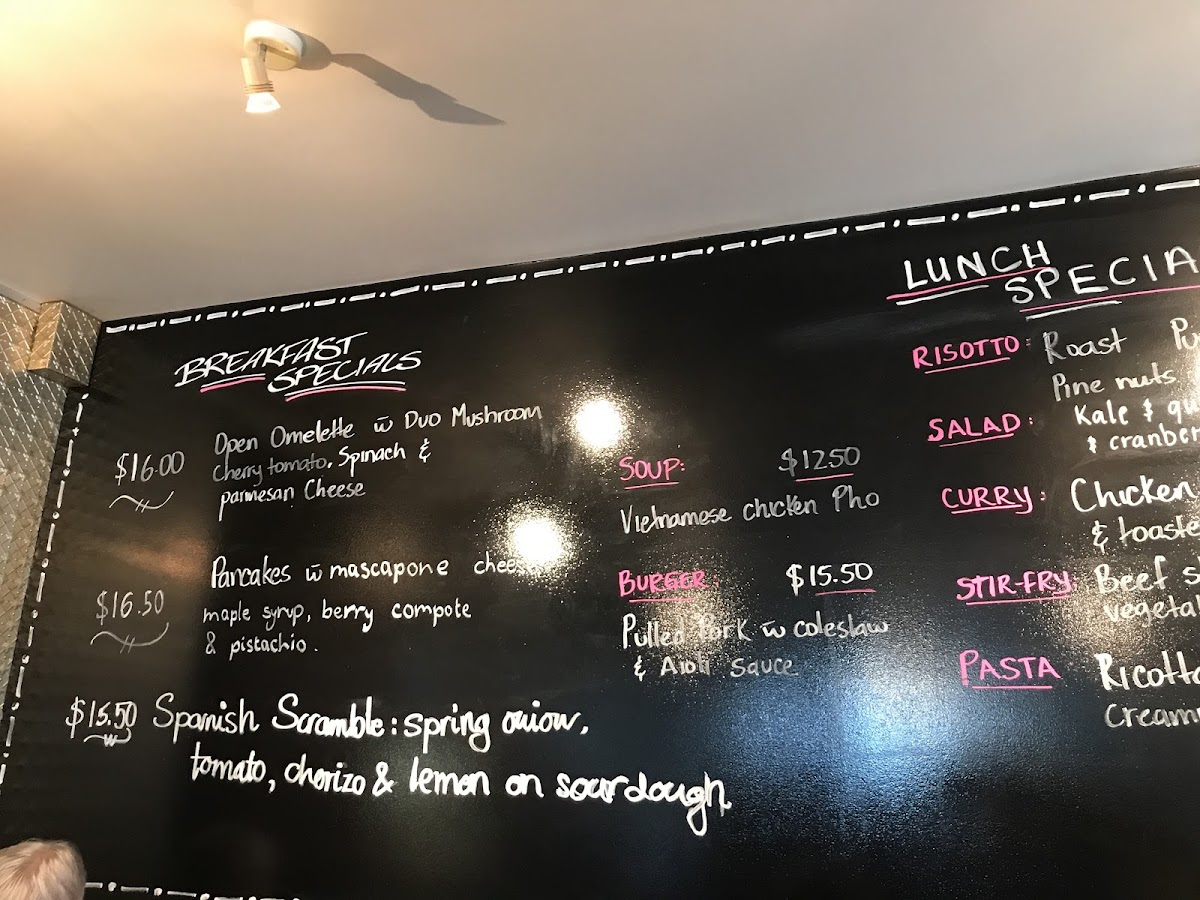 BREAKFAST
SPECIALS
$16.00
Open Omelette w̄ Duo Mushroom
Cherry tomato, Spinach &
parmesan Cheese
$16.50
Pancakes w̄ mascapone cheese
maple syrup, berry compote
& pistachio.
$15.50 Spanish Scramble: spring onion,
tomato, chorizo & lemon on sourdough
SOUP: $12.50
Vietnamese chicken Pho
BURGER $15.50
Pulled Pork w̄ coleslaw
& Aioli sauce
LUNCH
SPECIA
RISOTTO: Roast
Pine nuts
SALAD: Kale &
& cranber
CURRY: Chicken
& toaste
STIR-FRY: Beef
vegeta
PASTA Ricotta
Cream